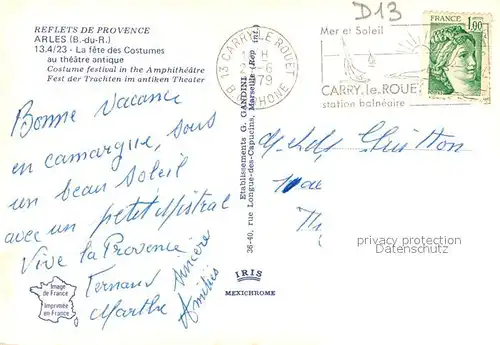 REFLETS DE PROVENCE
ARLES (B.-du-R.)
13.4/23 - La fête des Costumes
au théâtre antique
Costume festival in the Amphithéâtre
Fest der Trachten im antiken Theater
Bonne Vacance
en camargue, sous
un beau soleil
avec un petit Mistral
Vive la Provence
Fernand
Marthe
sincère
Amitiés
Image
de France
Imprimée
en France
IRIS
MEXICHROME
Etablissements G. GANDINI
36-40, rue Longue-des-Capucins, Marseille (Rep. int.)
13 CARRY-LE-ROUET
B. D. RHONE
D13
Mer et Soleil
CARRY.le.ROUE
station balnéaire
FRANCE
1,00
Guitton
privacy protection
Datenschutz